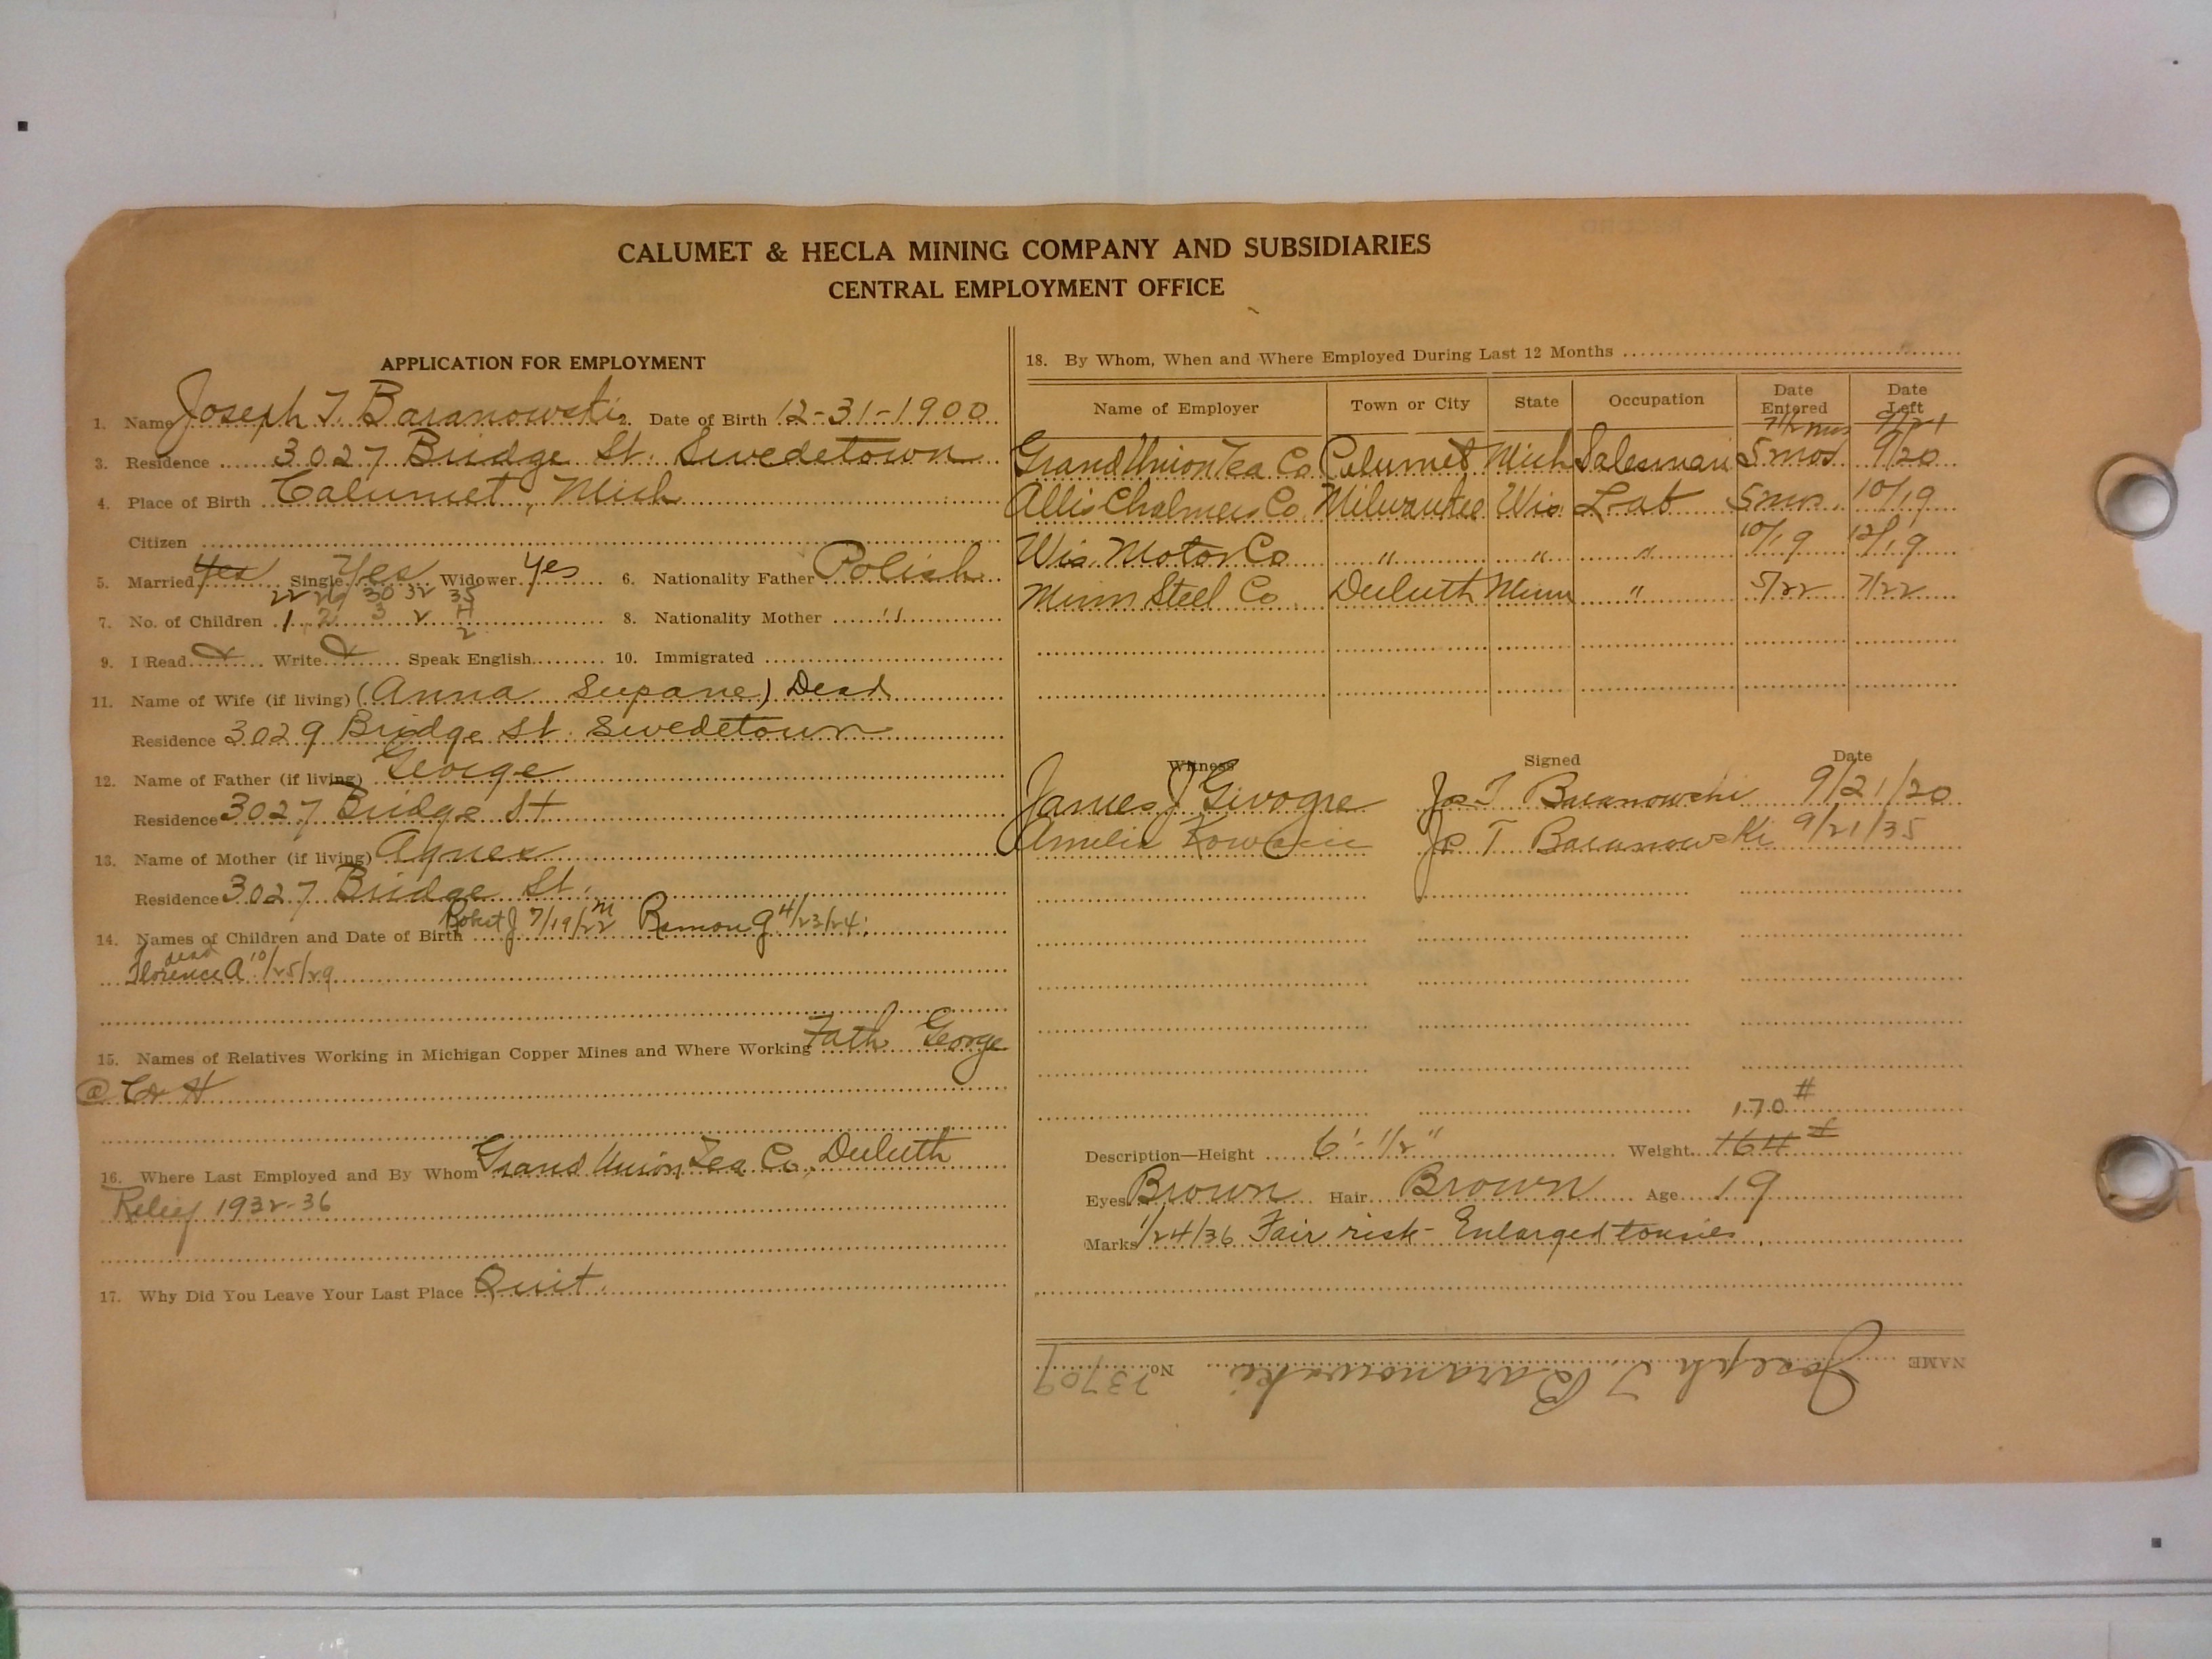 CALUMET & HECLA MINING COMPANY AND SUBSIDIARIES
CENTRAL EMPLOYMENT OFFICE
APPLICATION FOR EMPLOYMENT
1. Name Joseph T. Baranowski 2. Date of Birth 12-31-1900
3. Residence 3027 Bridge St. Swedetown
4. Place of Birth Calumet, Mich
Citizen
5. Married Yes Single Yes Widower Yes 6. Nationality Father Polish
22 29 30 32 35
7. No. of Children 1 2 3 2 4 8. Nationality Mother "
2
9. I Read x Write x Speak English 10. Immigrated
11. Name of Wife (if living) (Anna Supane) Dead
Residence 3029 Bridge St. Swedetown
12. Name of Father (if living) George
Residence 3027 Bridge St
13. Name of Mother (if living) Agnes
Residence 3027 Bridge St.
14. Names of Children and Date of Birth Robert J 7/19/22 M Ramon G 4/23/24
dead
Florence A 10/25/29
15. Names of Relatives Working in Michigan Copper Mines and Where Working Fath George
@ C & H
16. Where Last Employed and By Whom Grand Union Tea Co. Duluth
Relief 1932-36
17. Why Did You Leave Your Last Place Quit
18. By Whom, When and Where Employed During Last 12 Months
Name of Employer Town or City State Occupation Date Entered Date Left
7 1/2 mos 9/21
Grand Union Tea Co Calumet Mich Salesman 5 mos 9/20
Allis Chalmers Co Milwaukee Wis Lab 5 mos 10/19
Wis Motor Co " " " 10/19 12/19
Minn Steel Co Duluth Minn " 5/22 7/22
Witness Signed Date
James J Givogre Jos T Baranowski 9/21/20
Amelia Jos T Baranowski 9/21/35
170 #
Description—Height 6'-1/2" Weight 164 #
Eyes Brown Hair Brown Age 19
Marks 1/24/36 Fair risk - Enlarged tonsils
NAME Joseph T. Baranowski No. 23709